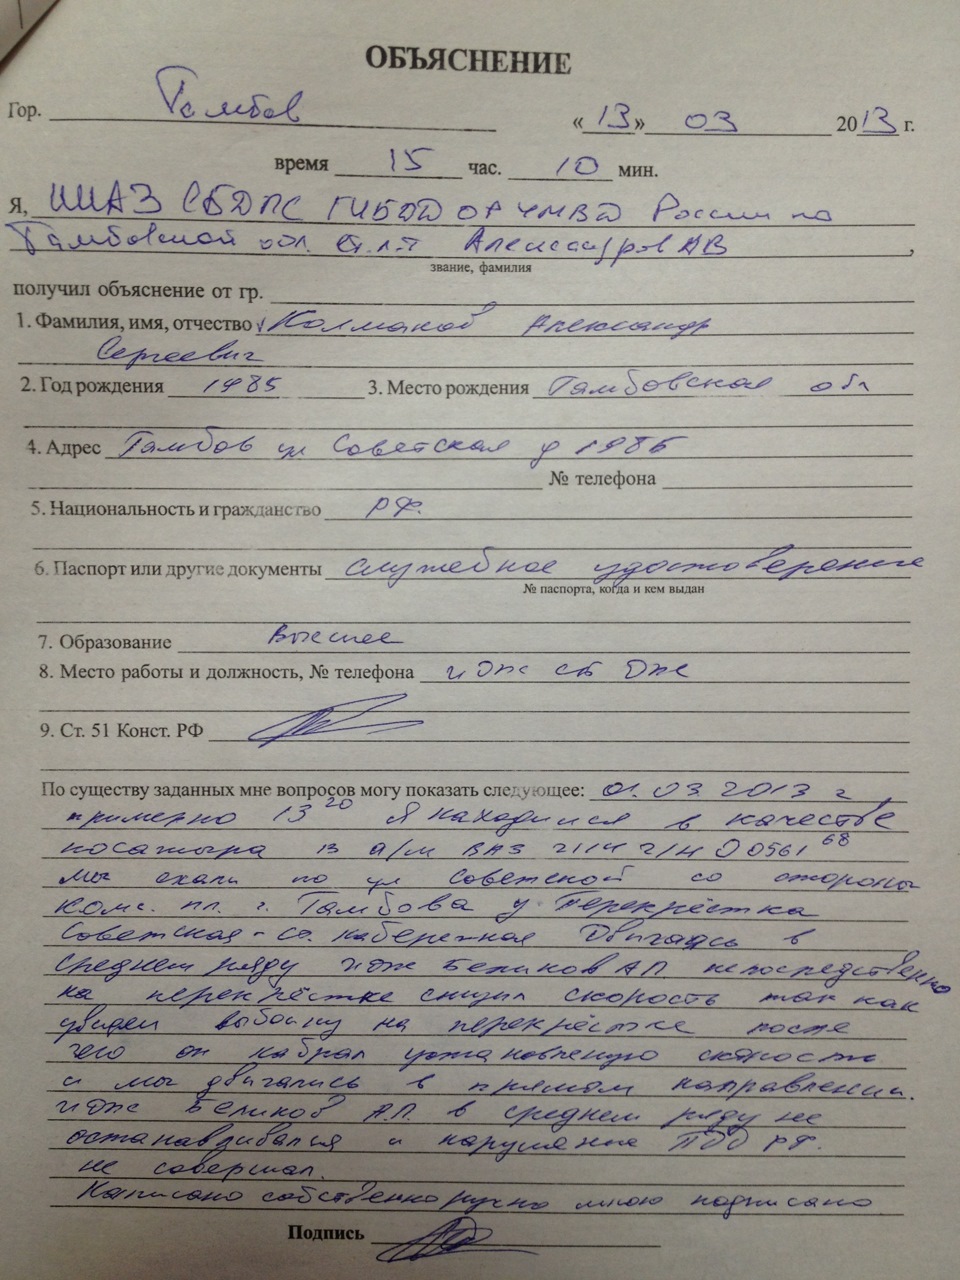 ОБЪЯСНЕНИЕ
Гор. Тамбов «13» 03 2013 г.
время 15 час. 10 мин.
Я, ИИАЗ СБДПС ГИБДД УМВД России по
Тамбовской обл. ст. л-т Александров АВ,
звание, фамилия
получил объяснение от гр.
1. Фамилия, имя, отчество Колмаков Александр
Сергеевич
2. Год рождения 1985 3. Место рождения Тамбовская обл
4. Адрес Тамбов ул Советская д
№ телефона
5. Национальность и гражданство РФ.
6. Паспорт или другие документы служебное удостоверение
№ паспорта, когда и кем выдан
7. Образование Высшее
8. Место работы и должность, № телефона идпс сб дпс
9. Ст. 51 Конст. РФ
По существу заданных мне вопросов могу показать следующее: 01.03.2013 г
примерно 13 20 Я находился в качестве
посажыра в а/м ВАЗ 2114 г/н О 0561 68
мы ехали по ул Советской со стороны
комс. пл. г. Тамбова у перекрёстка
Советская - набережная двигаясь в
среднем ряду идпс Беликов АП непосредственно
на перекрёстке снизил скорость так как
увидел выбоину на перекрёстке после
чего он набрал установленую скорость
и мы двигались в прямом направлении.
идпс Беликов А.П. в среднем ряду не
останавливался и нарушение ПДД РФ.
не совершал.
Написано собственноручно мною подписано
Подпись